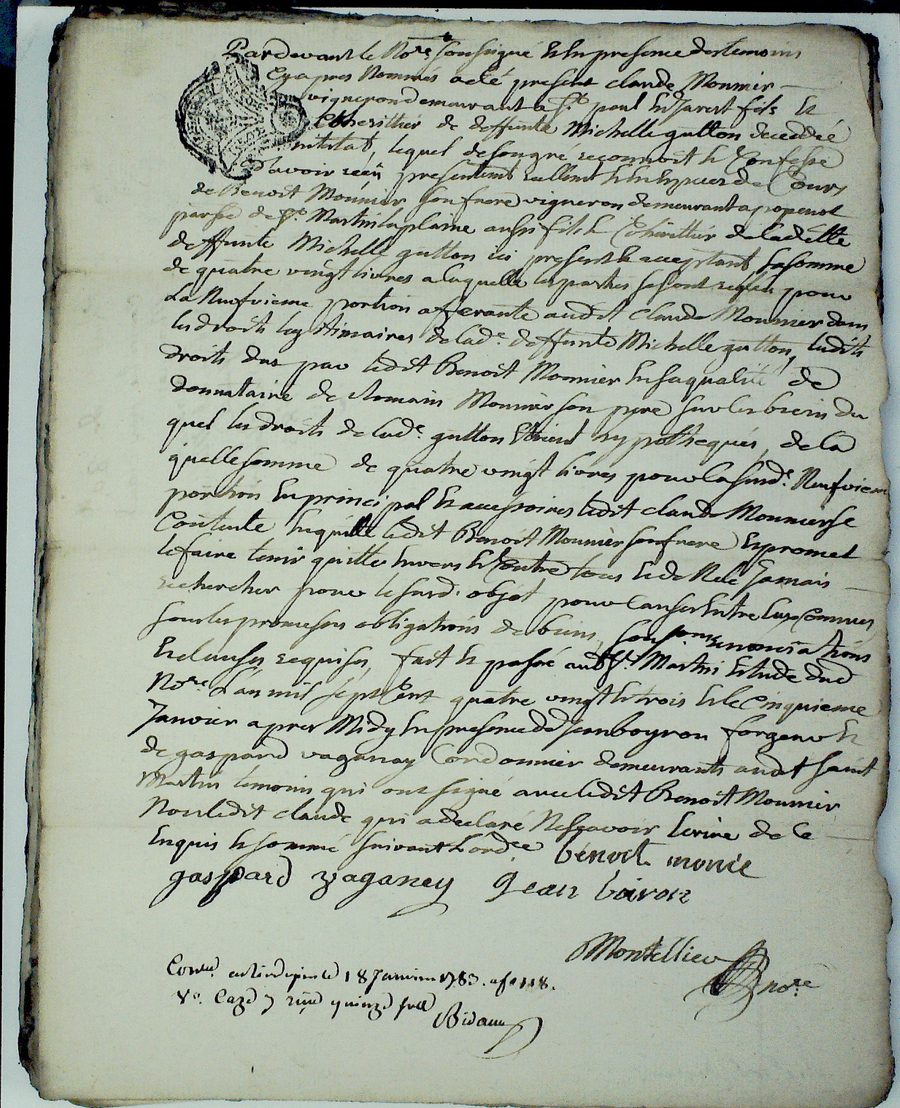 Pardevant le No.re soussigné Et En presence des temoins
Cyapres Nommés a eté present Claude Mounier
vigneron demeurant a St. paul En Jarest fils Et
Cohéritier de deffunte Michelle gutton decedée
intestat, lequel de son gré reconnoit et Confesse
d'avoir reçu presentement reellement et En Especes de Cours
de Benoit Mounier son frere vigneron demeurant a
parsse de St. Martin laplaine aussi fils Et Cohéritier de ladette
deffunte Michelle gutton ici present Et acceptant, la somme
de quatre vingt livres a laquelle les parties se sont reglés pour
La Neufvieme portion aferante audit Claude Mounier dans
les droits legitimaires de lad.e deffunte Michelle gutton, lesdits
droits dus par ledit Benoit Mounier En sa qualité de
donnataire de Romain Mounier son pere sur les biens du
quel les droits de lad.e gutton Etoient hypothequés, de la
quelle somme de quatre vingt livres pour la susd.e Neufvieme
portion En principal Et accessoires ledit Claude Mounier se
Contente En quitte ledit Benoit Mounier son frere Et promet
le faire tenir quitte Envers Et Contre tous Et de Ne le Jamais
rechercher pour le susd. objet pour Causes Entre Eux Connues,
sous les promesses obligations de biens, renonciations
Et clauses requises, fait Et passé audt St. Martin Etude dud
No.re L'an mil sept Cent quatre vingt Et trois Et le Cinquieme
Janvier apres Midy En presence de Jean boyron forgeur Et
de gaspard vaganay Cordonnier demeurants audt saint
Martin temoins qui ont signé avec ledit Benoit Mounier
Non ledit Claude qui a declaré Ne sçavoir Ecrire de ce
Enquis Et sommé suivant L'ord.ce benoit monie
gaspard vaganey Jean boiron
Montellier no.re
Con.lé 18 Janvier 1783. f.o 118.
V.o Caze 7 reçu quinze sols
Bidau